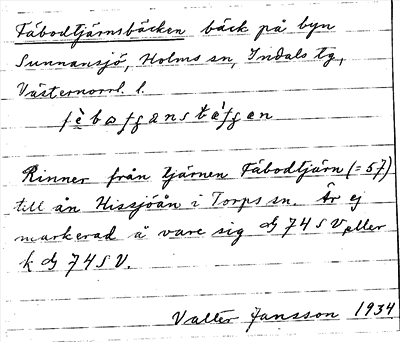 Fäbodtjärnsbäcken bäck på byn
Sunnansjö, Holms sn, Indals tg,
Västernorrl. l.
Rinner från tjärnen Fäbodtjärn (= 57)
till ån Hissjöån i Torps sn. Är ej
markerad å vare sig 74 S V eller
k 74 S V.
Valter Jansson 1934